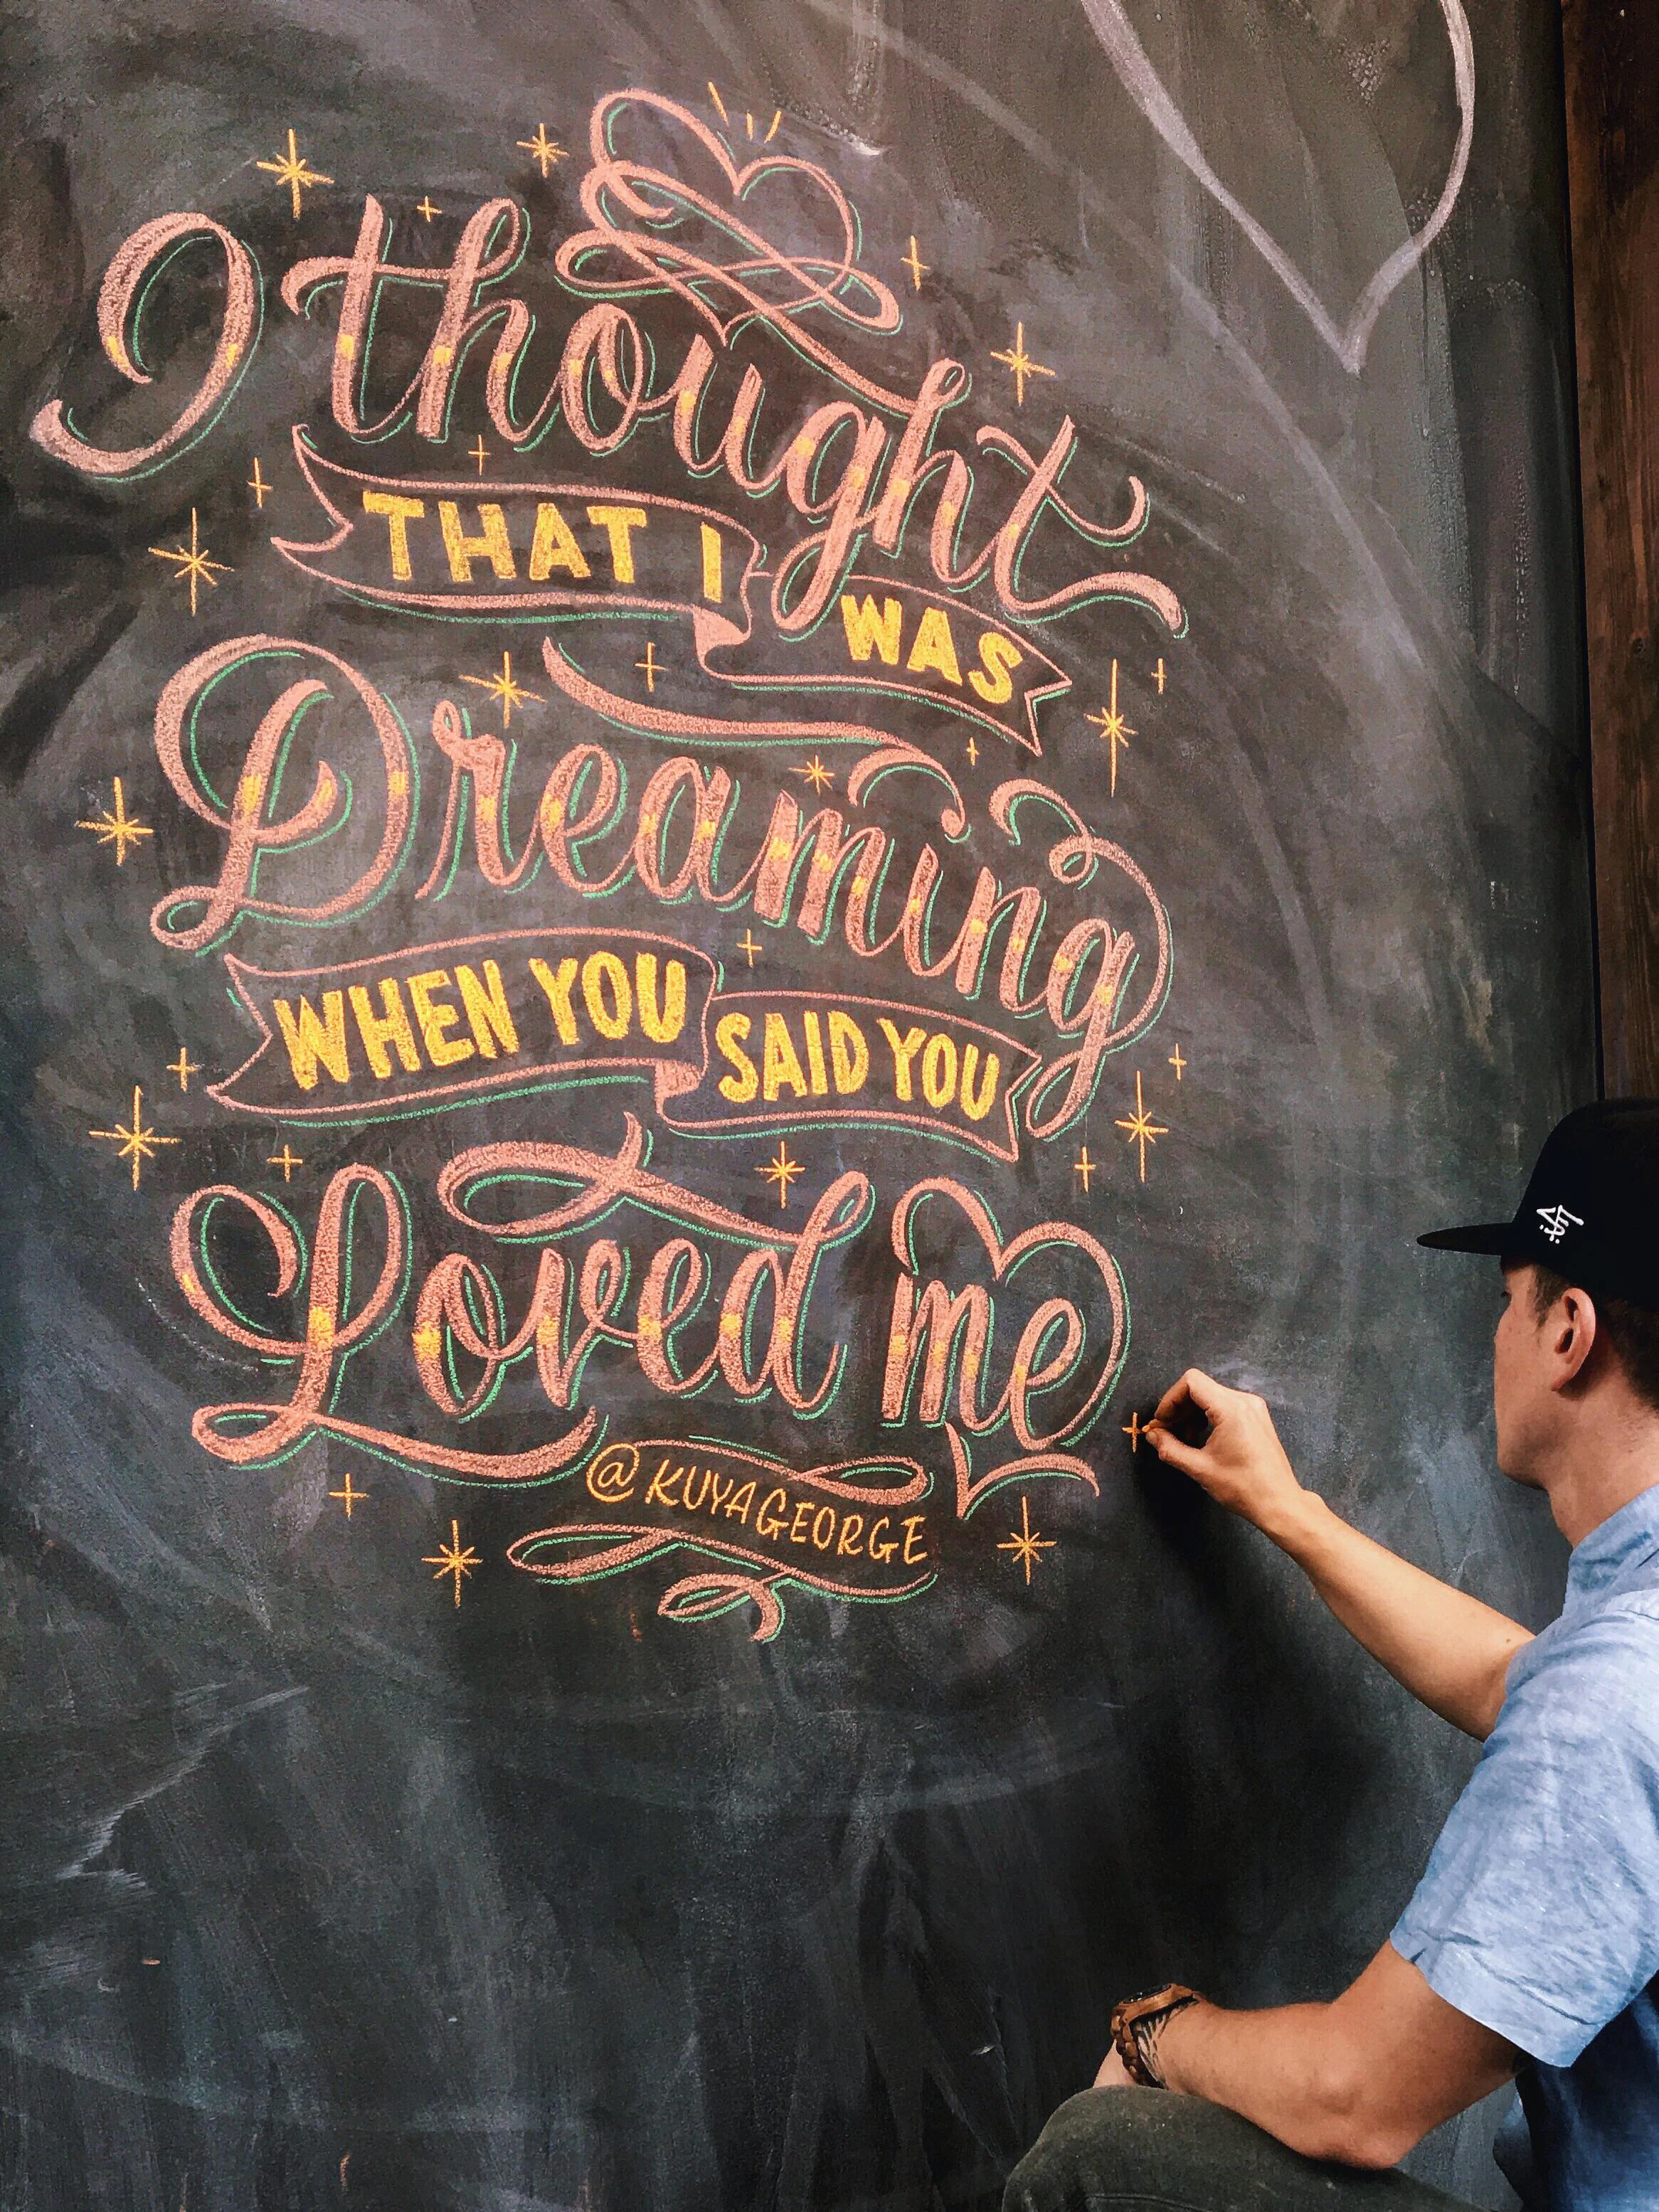 I thought
THAT I WAS
Dreaming
WHEN YOU SAID YOU
Loved me
@KUYAGEORGE